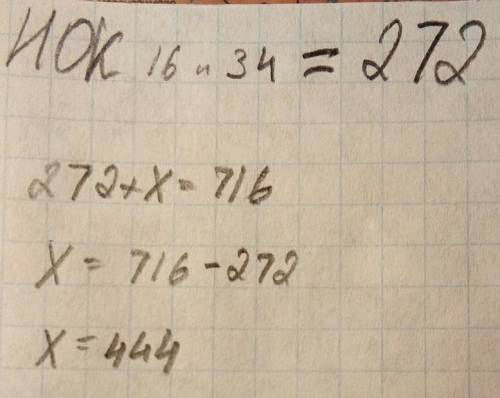 НОК 16 и 34 = 272
272 + X = 716
X = 716 - 272
X = 444